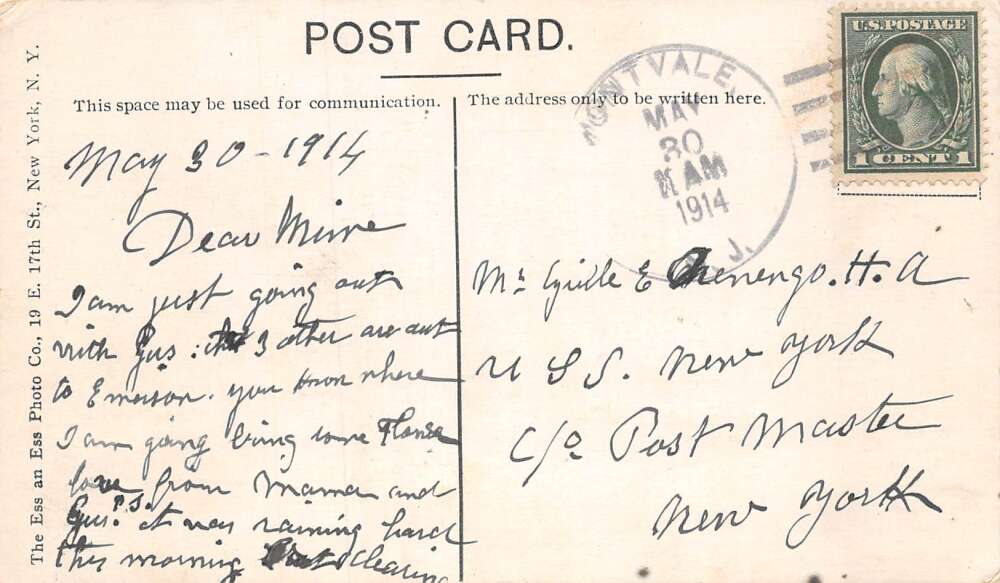 POST CARD.
This space may be used for communication.
The address only to be written here.
The Ess an Ess Photo Co., 19 E. 17th St., New York, N. Y.
MONTVALE,
MAY
30
AM
1914
N. J.
U.S. POSTAGE
1 CENT 1
May 30 - 1914
Dear Mime
I am just going out
with Gus: the 3 other are out
to Emerson. you know where
I am going bring some
love from Mama and
Gus. P.S. it was raining hard
this morning but clearing
Mr Cyrille E Chenengo. H. A
U S S. New York
C/o Post Master
New York